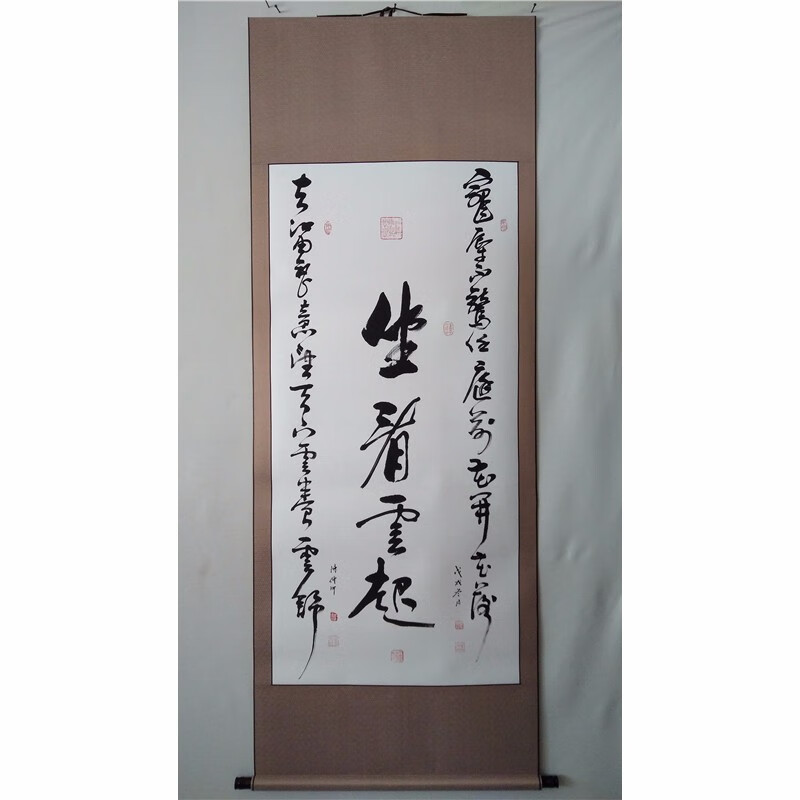 寵辱不驚任庭前花開花落
戊戌冬月
坐看雲起
去留無意隨天外雲卷雲舒